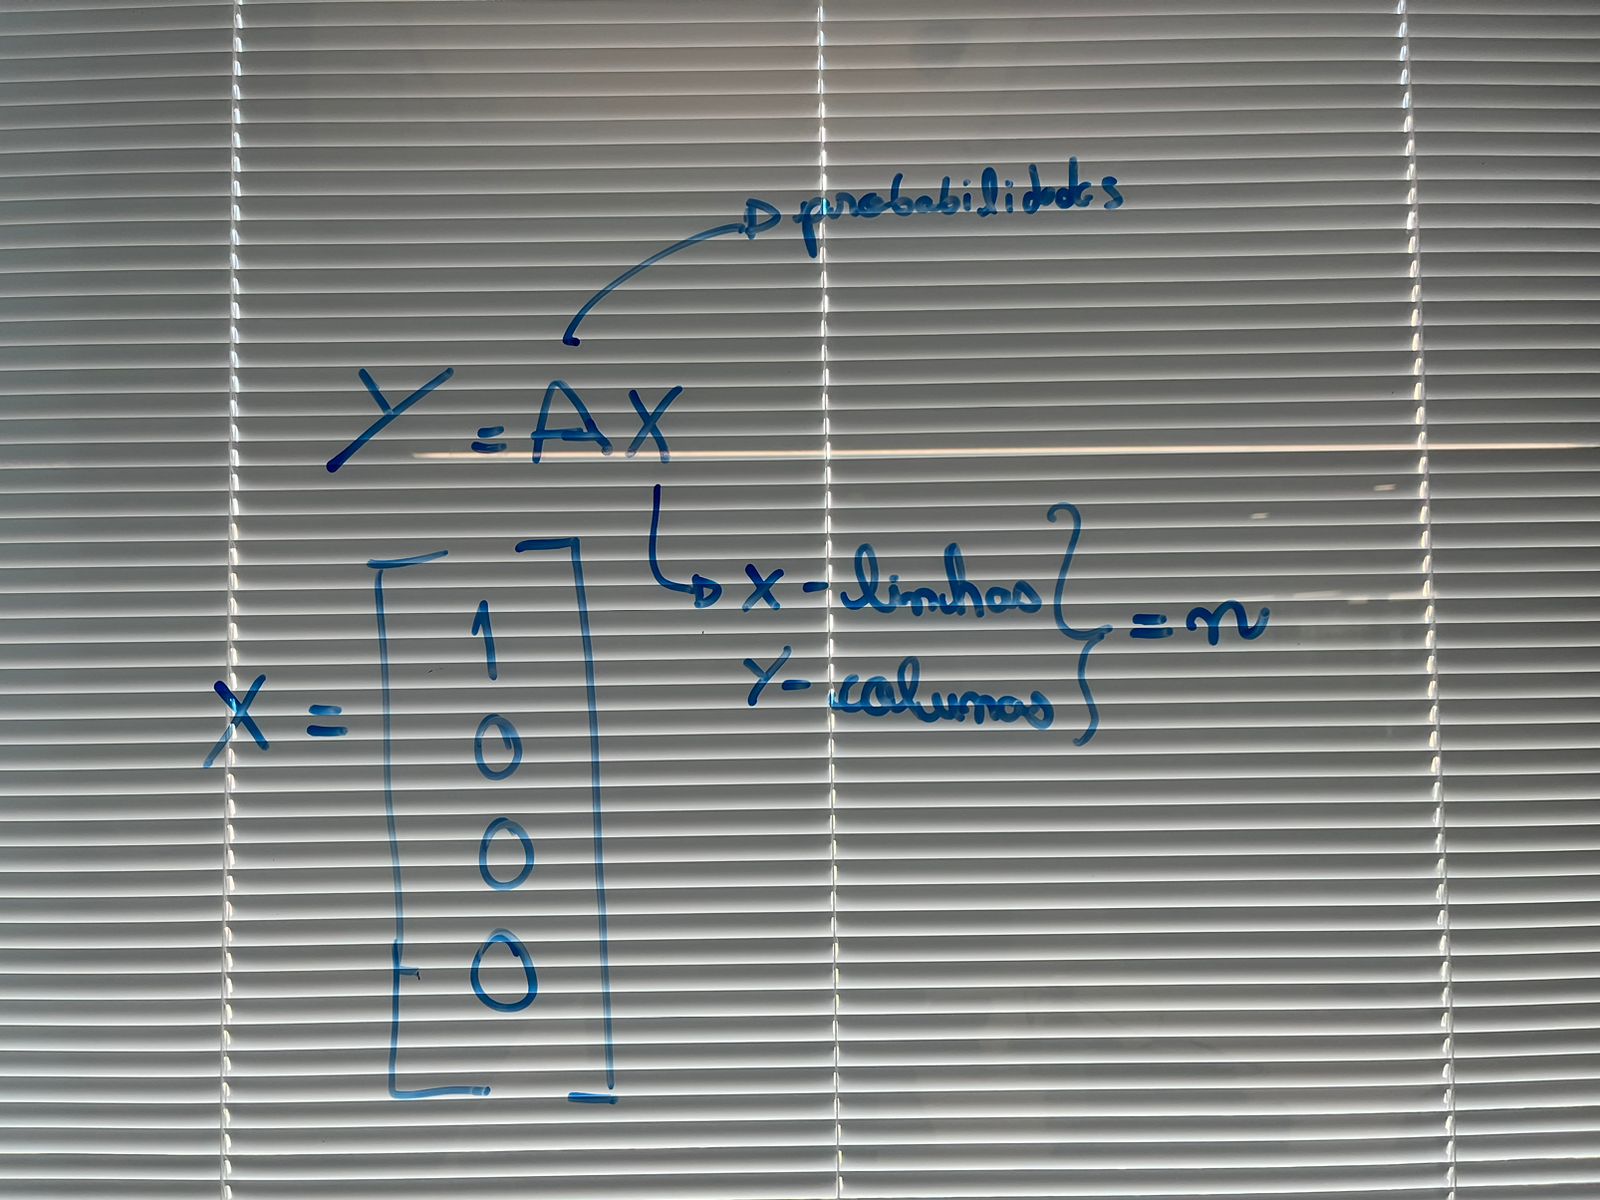 probabilidades
Y = AX
X - linhas
Y - colunas
= n
X =
1
0
0
0